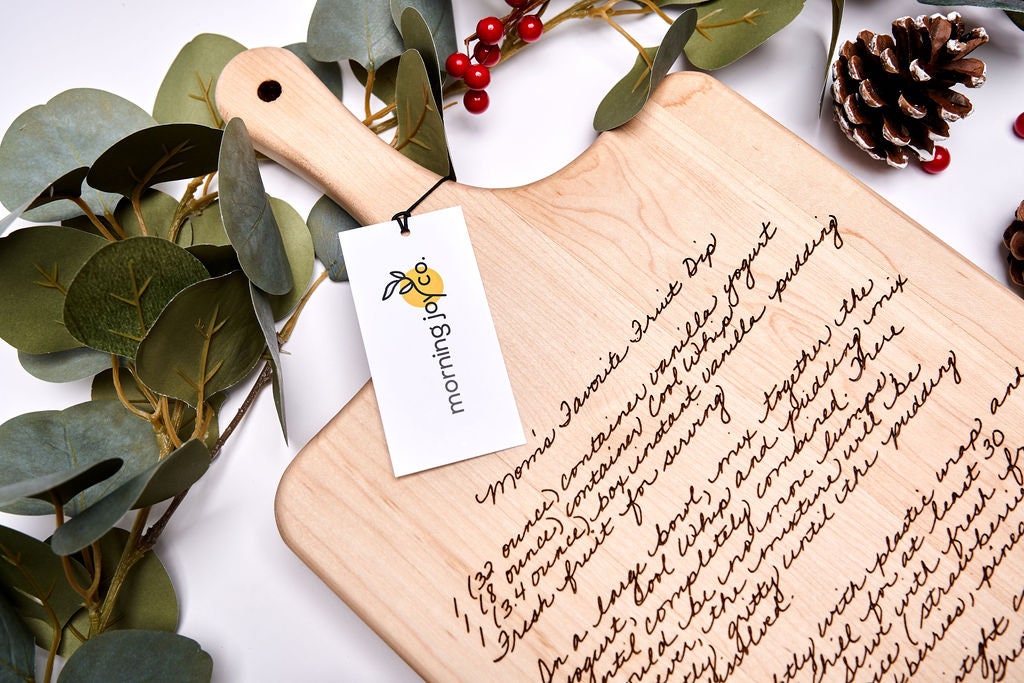 morning joy co.
Mom's Favorite Fruit Dip
1 (32 ounce) container vanilla yogurt
1 (8 ounce) container Cool Whip
1 (3.4 ounce) box instant vanilla pudding
Fresh fruit for serving
In a large bowl, mix together the
yogurt, Cool Whip and pudding mix
until completely combined. There
should be no more lumps,
the mixture will be
gritty until the pudding
dissolved.
with plastic wrap and
chill for at least 30
serve with fresh